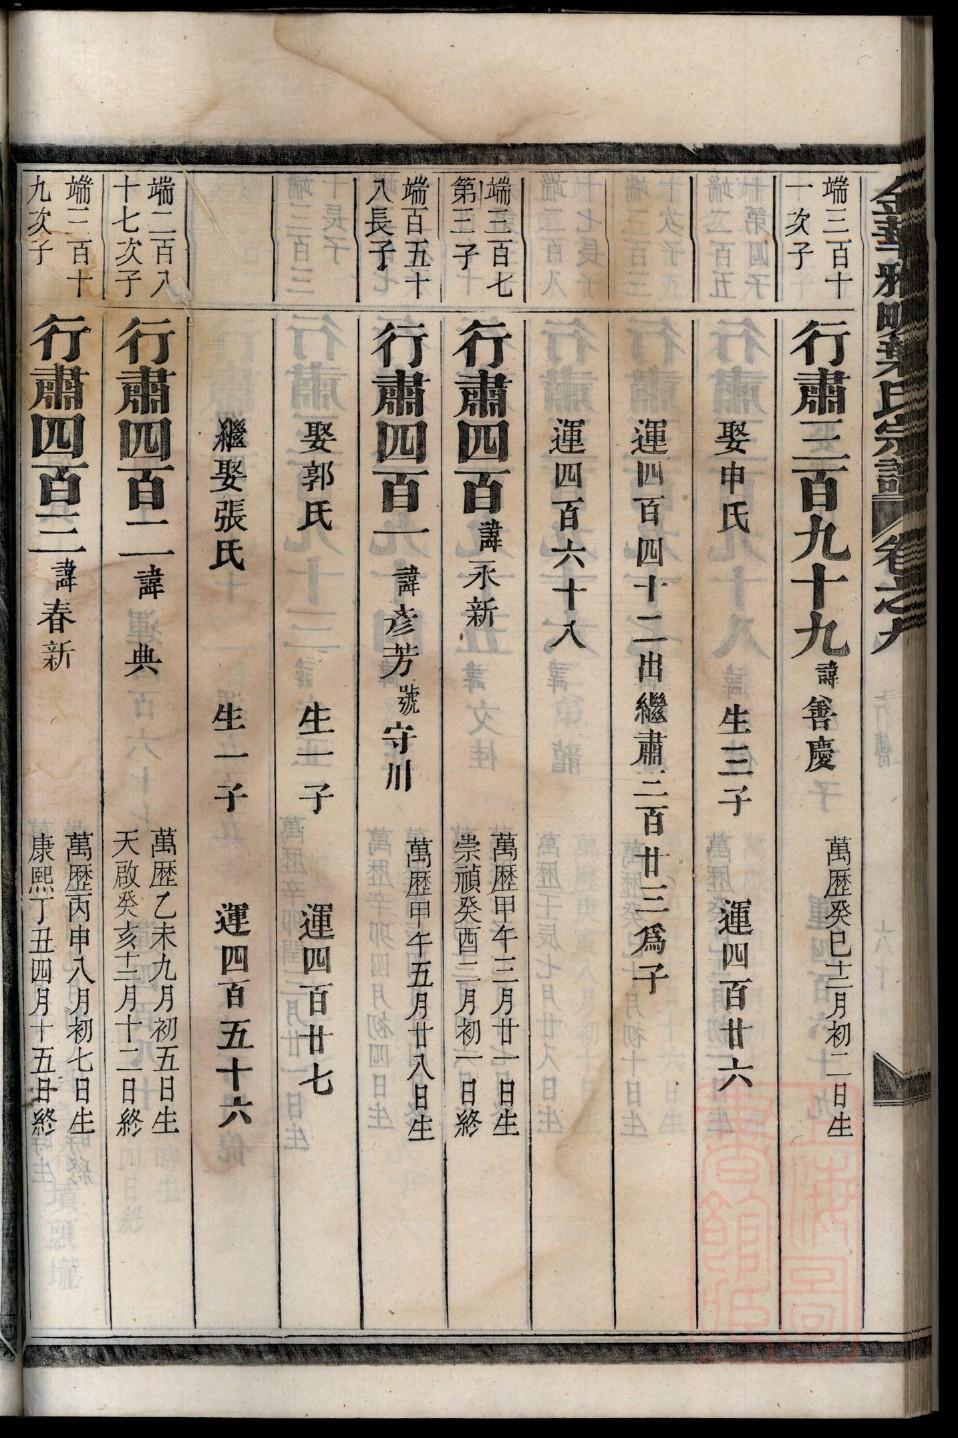 金華雅畈葉氏宗譜 卷之九
端三百十
一次子
行肅三百九十九 諱 善慶
萬歷癸巳十二月初二日生
娶申氏 生三子 運四百廿六
運四百四十二出繼肅三百廿三爲子
運四百六十八
端三百七
第三子
行肅四百 諱 永新
萬歷甲午三月廿一日生
崇禎癸酉二月初一日終
端百五十
八長子
行肅四百一 諱 彦芳 號 守川
萬歷甲午五月廿八日生
娶郭氏 生一子 運四百廿七
繼娶張氏 生一子 運四百五十六
端二百八
十七次子
行肅四百二 諱 典
萬歷乙未九月初五日生
天啟癸亥十二月十二日終
端三百十
九次子
行肅四百三 諱 春新
萬歷丙申八月初七日生
康熙丁丑四月十五日終